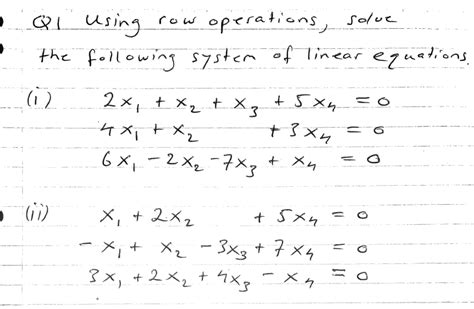 Q1 Using row operations, solve
the following system of linear equations.
(i) 2x₁ + x₂ + x₃ + 5x₄ = 0
4x₁ + x₂ + 3x₄ = 0
6x₁ - 2x₂ - 7x₃ + x₄ = 0
(ii) x₁ + 2x₂ + 5x₄ = 0
- x₁ + x₂ - 3x₃ + 7x₄ = 0
3x₁ + 2x₂ + 4x₃ - x₄ = 0